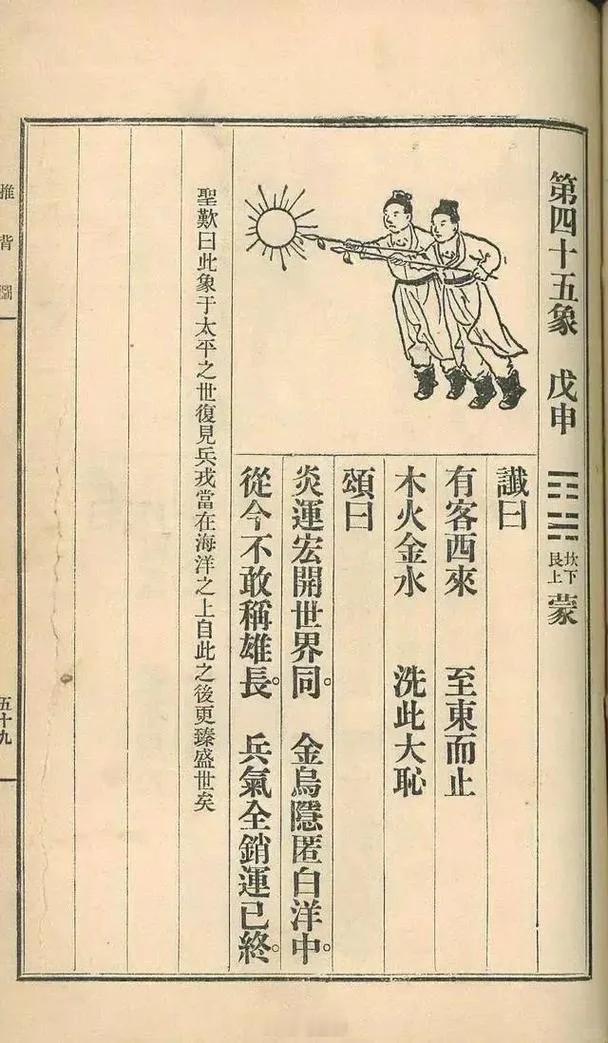 第四十五象 戊申 坎下艮上 蒙
讖曰
有客西來 至東而止
木火金水 洗此大恥
頌曰
炎運宏開世界同。 金烏隱匿白洋中。
從今不敢稱雄長。 兵氣全銷運已終。
聖歎曰此象于太平之世復見兵戎當在海洋之上自此之後更臻盛世矣
推背圖
五十九